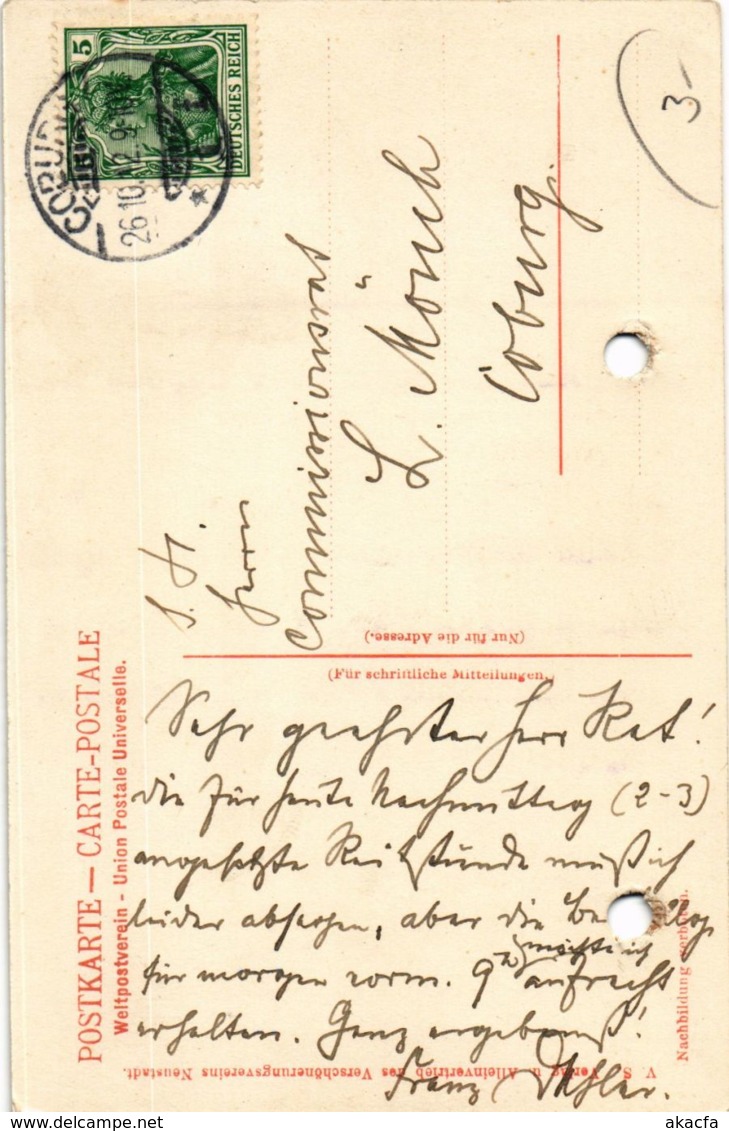 5
DEUTSCHES REICH
COBURG
26.10.12.9-10V.
3-
POSTKARTE — CARTE-POSTALE
Weltpostverein - Union Postale Universelle.
S. H.
Herrn
Commissionsrat
L. Mönch
Coburg.
(Nur für die Adresse.)
(Für schriftliche Mitteilungen.)
Sehr geehrter Herr Rat!
die für heute Nachmittag (2-3)
angesetzte Reitstunde muß ich
leider absagen, aber die
möchte ich
für morgen vorm. 9 aufrecht
erhalten. Ganz ergebenst!
Franz
Nachbildung verboten.
V. S. Verlag u. Alleinvertrieb des Verschönerungsvereins Neustadt.
akacfa
delcampe.net